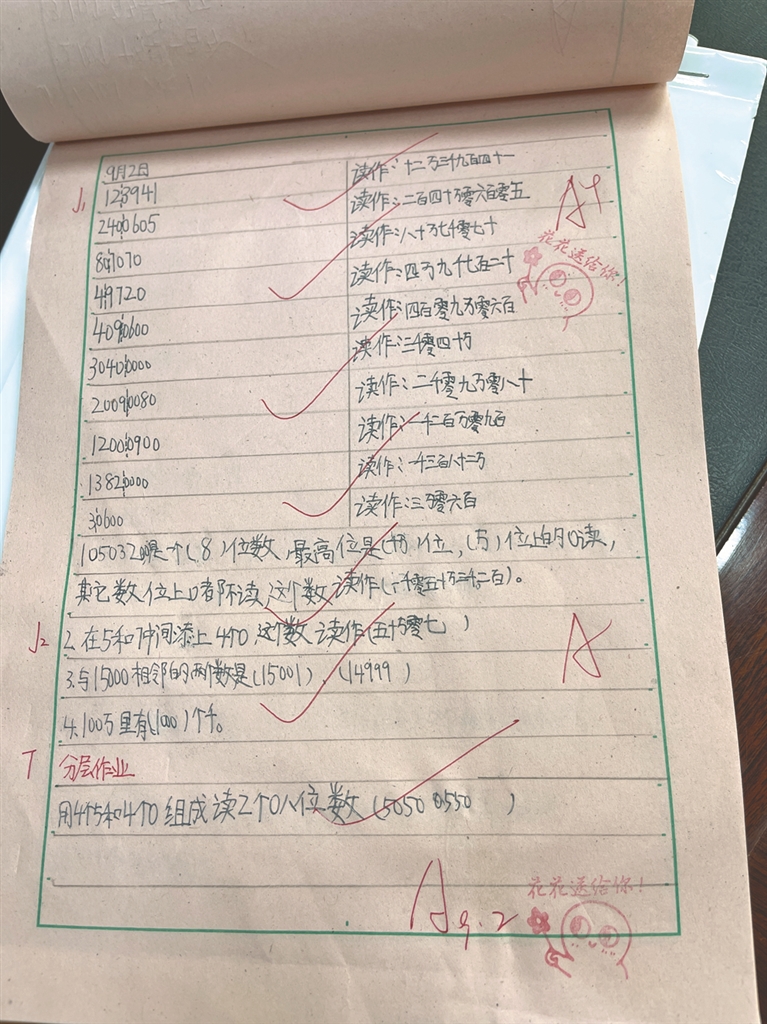 9月2日
123941 读作:十二万三千九百四十一
J1
2400605 读作:二百四十万零六百零五
A+
807070 读作:八十万七千零七十
花花送给你!
49720 读作:四万九千七百二十
4090600 读作:四百零九万零六百
30400000 读作:三千零四十万
20090080 读作:二千零九万零八十
12000900 读作:一千二百万零九百
13820000 读作:一千三百八十二万
30600 读作:三万零六百
是一个(8)位数,最高位是(千万)位,(万)位上的0读,
其它数位上0都不读,这个数读作(一千零五十万三千二百)。
J2
2.在5和7中间添上4个0这个数读作(五十万零七)
3.与15000相邻的两个数是(15001)、(14999)
A
4.100万里有(1000)个千。
T 分层作业
用4个5和4个0组成读2个0八位数(5050 0550)
A 9.2
花花送给你!